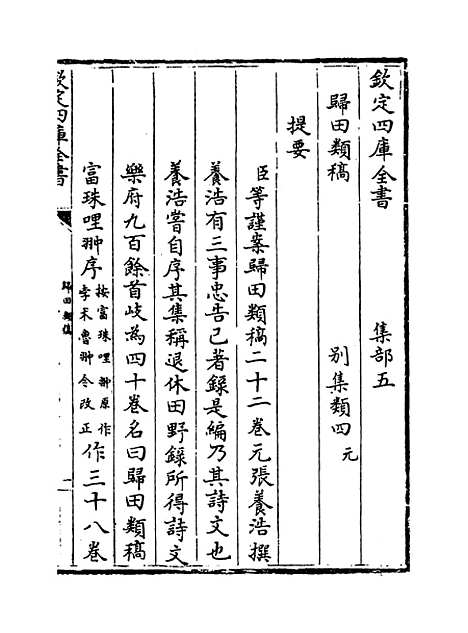 欽定四庫全書　集部五
歸田類稿　別集類四元
提要
臣等謹案歸田類稿二十二卷元張養浩撰
養浩有三事忠告已著錄是編乃其詩文也
養浩嘗自序其集稱退休田野錄所得詩文
樂府九百餘首岐為四十卷名曰歸田類稿
富珠哩翀序按富珠哩翀原作孛朮魯翀今改正作三十八卷
欽定四庫全書
歸田類稿
一